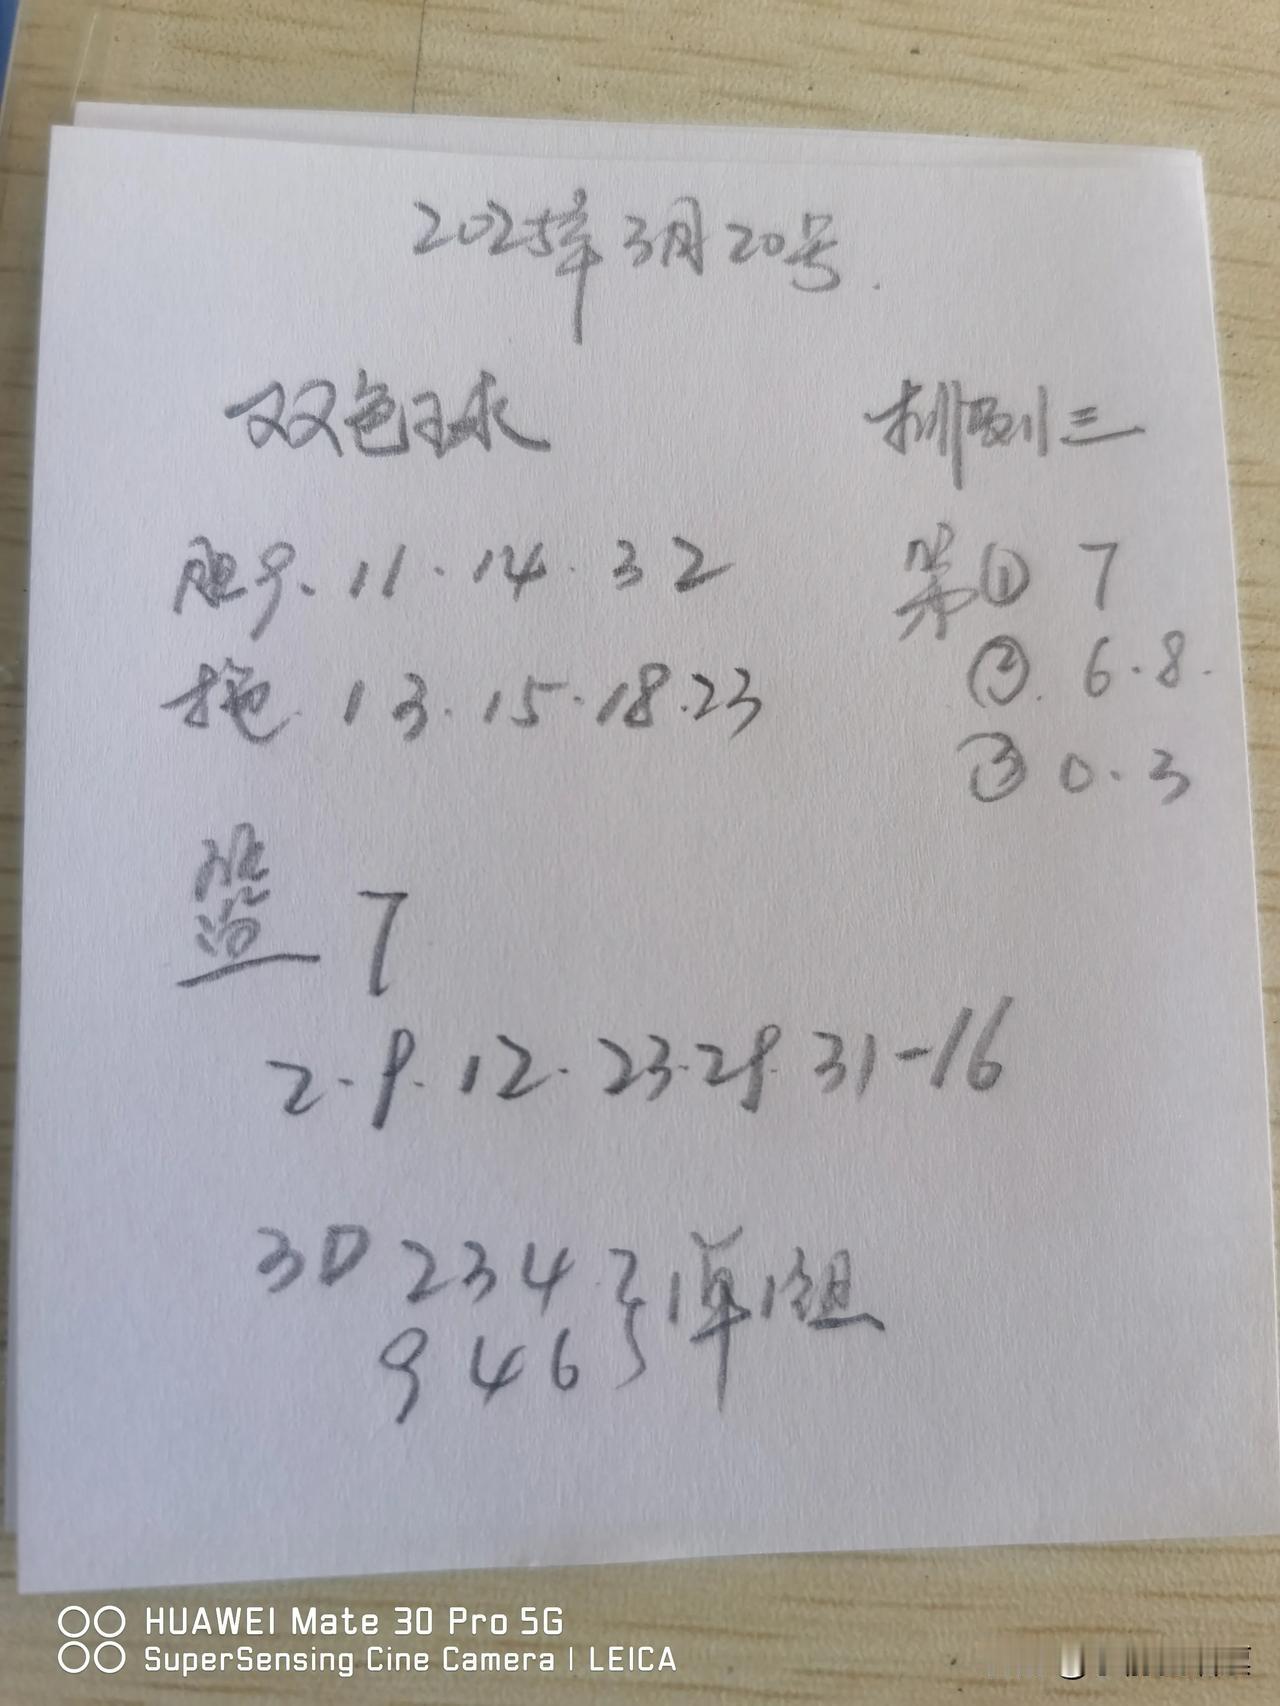 2025年3月20号.
双色球
胆号.11.14.32
拖.13.15.18.23
7
2.9.12.23.29.31-16
排列三
第① 7
②.6.8.
③0.3
3D 234
946
1单1组
HUAWEI Mate 30 Pro 5G
SuperSensing Cine Camera | LEICA